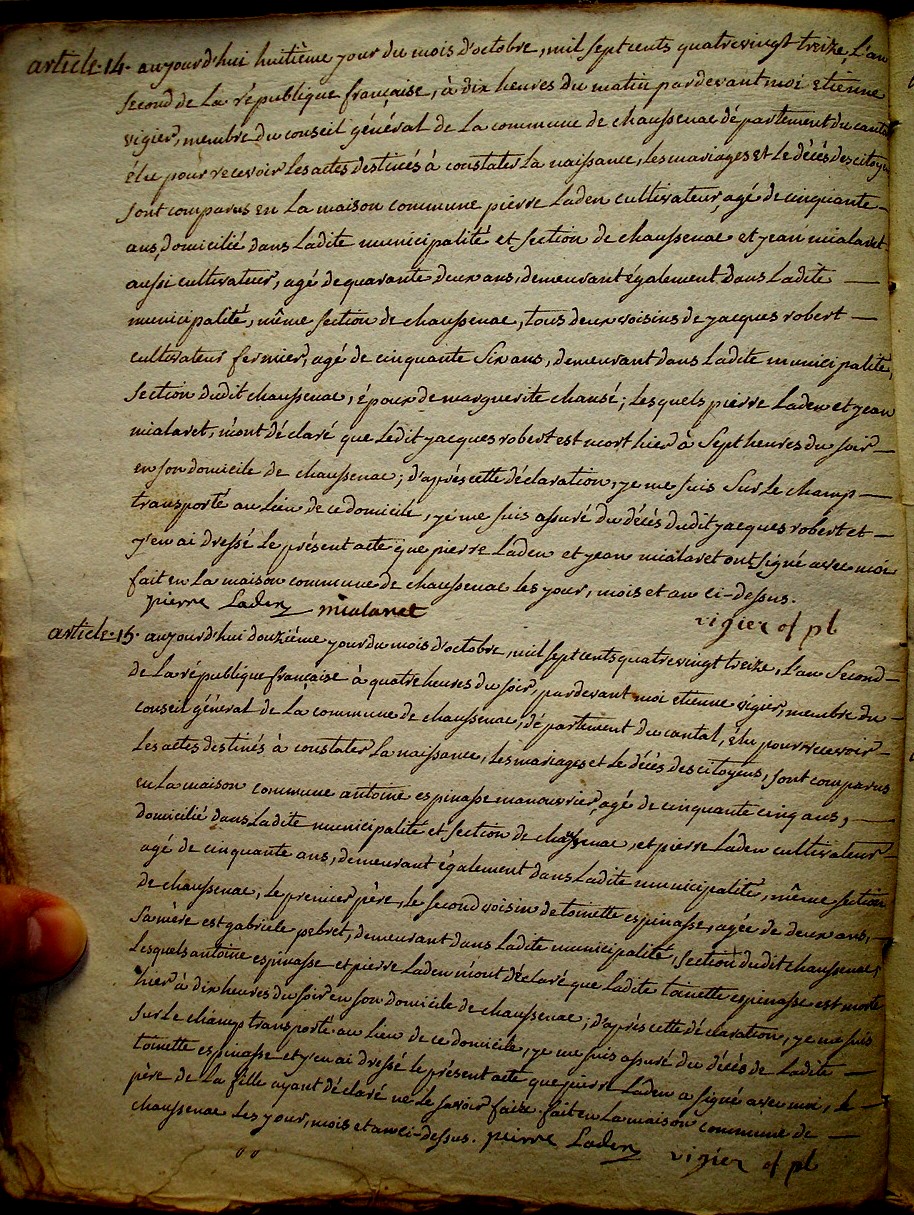 article 14. aujourd'hui huitième jour du mois d'octobre, mil sept cents quatre vingt treize, L'an
second de La république française, à dix heures du matin pardevant moi etienne
vigier, membre du conseil général de La commune de chaussenac département du canta
élu pour recevoir Les actes destinés à constater La naissance, Les mariages et Le décès des citoye
sont comparus en La maison commune pierre Laden cultivateur, agé de cinquante
ans, domicilié dans Ladite municipalité et section de chaussenac et jean mialaret
aussi cultivateur, agé de quarante deux ans, demeurant également dans Ladite —
municipalité, même section de chaussenac, tous deux voisins de jacques robert —
cultivateur fermier, agé de cinquante six ans, demeurant dans Ladite municipalité,
section dudit chaussenac, époux de marguerite chansé; Lesquels pierre Laden et jean
mialaret, m'ont déclaré que Ledit jacques robert est mort hier à sept heures du soir —
en son domicile de chaussenac; d'après cette déclaration, je me suis sur Le champ —
transporté au Lieu de ce domicile, je me suis assuré du décès dudit jacques robert et —
j'en ai dressé Le présent acte que pierre Laden et jean mialaret ont signé avec moi
fait en La maison commune de chaussenac Les jour, mois et an ci-dessus.
pierre Laden mialaret vigier of pl
article 15. aujourd'hui douzième jour du mois d'octobre, mil sept cents quatre vingt treize, L'an second —
de La république française à quatre heures du soir, par devant moi etienne vigier, membre du —
conseil général de La commune de chaussenac, département du cantal, élu pour recevoir —
Les actes destinés à constater La naissance, Les mariages et Le décès des citoyens, sont comparus
en La maison commune antoine espinasse manouvrier, agé de cinquante cinq ans, —
domicilié dans Ladite municipalité et section de chaussenac, et pierre Laden cultivateur —
agé de cinquante ans, demeurant également dans Ladite municipalité, même section
de chaussenac, Le premier père, Le second voisin de toinette espinasse, agée de deux ans, —
sa mère est gabriele pebret, demeurant dans Ladite municipalité, section dudit chaussenac,
Lesquels antoine espinasse et pierre Laden m'ont déclaré que Ladite toinette espinasse est morte
hier à dix heures du soir en son domicile de chaussenac; d'après cette déclaration, je me suis
sur Le champ transporté au Lieu de ce domicile, je me suis assuré du décès de Ladite —
toinette espinasse et j'en ai dressé Le présent acte que pierre Laden a signé avec moi, Le —
père de La fille ayant déclaré ne Le savoir faire. fait en La maison commune de —
chaussenac Les jour, mois et an ci-dessus. pierre Laden vigier of pl